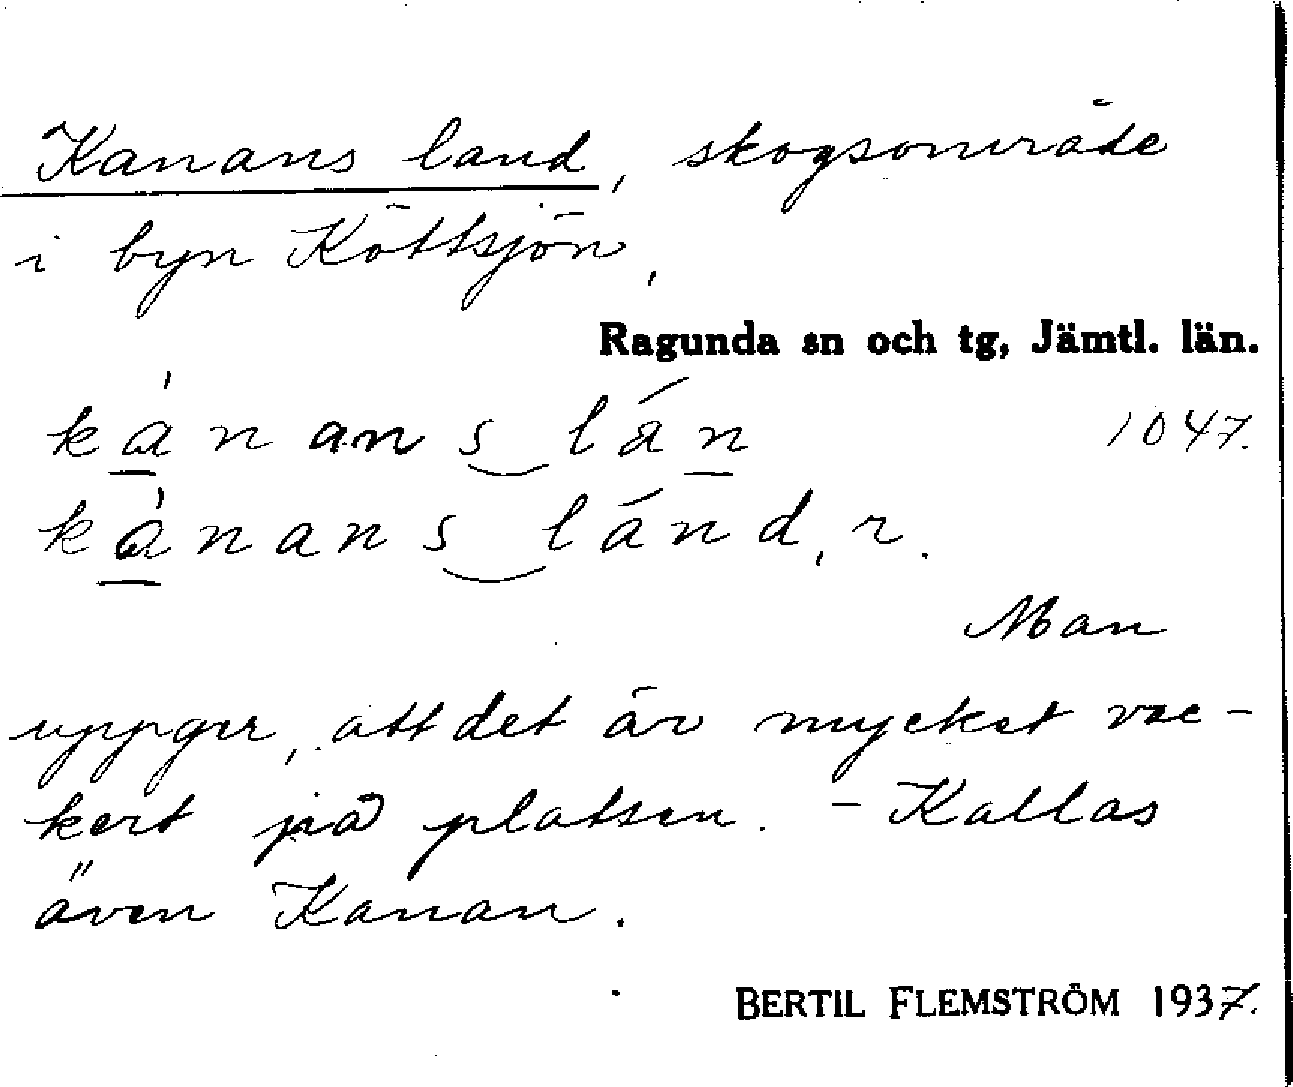 Kanans land, skogsområde
i byn Köttsjön,
Ragunda sn och tg, Jämtl. län.
kànans‿lán 1047.
kànans‿lánd, r.
Man
uppger, att det är mycket vac-
kert på platsen. - Kallas
även Kanan.
BERTIL FLEMSTRÖM 1937.